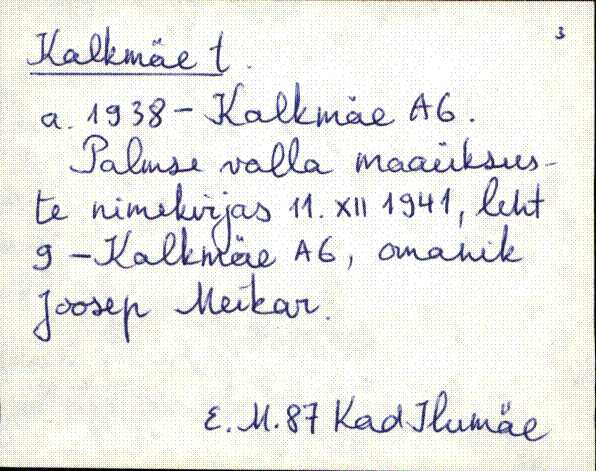 3
Kalkmäe t.
a. 1938 - Kalkmäe A6.
Palmse valla maaüksus-
te nimekirjas 11. XII 1941, leht
9 - Kalkmäe A6, omanik
Joosep Meikar.
E. M. 87 Kad Ilumäe